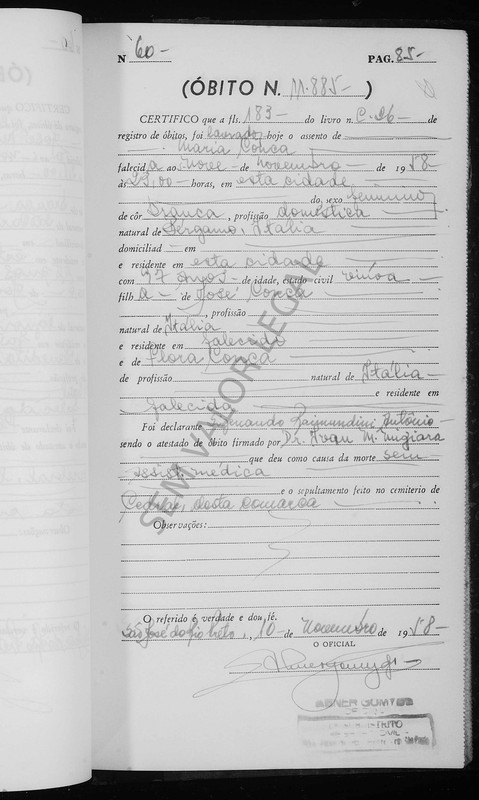 N 60-
PAG. 85-
(ÓBITO N. 11.885- )
CERTIFICO que a fls. 183- do livro n. C-26- de
registro de óbitos, foi lavrado hoje o assento de
Maria Conca
falecid a ao nove- de novembro- de 19 58-
às 23,00- horas, em esta cidade
do sexo feminino
de côr branca, profissão doméstica
natural de Bergamo, Italia
domiciliad - em
e residente em esta cidade
com 97 anos- de idade, estado civil viúva
filh a- de José Conca
, profissão
natural de Itália
e residente em falecido
e de Flora Conca
de profissão natural de Itália-
e residente em
falecida
Foi declarante Fernando Raimundini Antônio-
sendo o atestado de óbito firmado por Dr. M.
que deu como causa da morte sem
assist. médica
e o sepultamento feito no cemiterio de
desta comarca
Observações:
O referido é verdade e dou fé.
São José do Rio Preto, 10- de Novembro de 19 58-
O OFICIAL
ABNER GOMES
SEM VALOR LEGAL